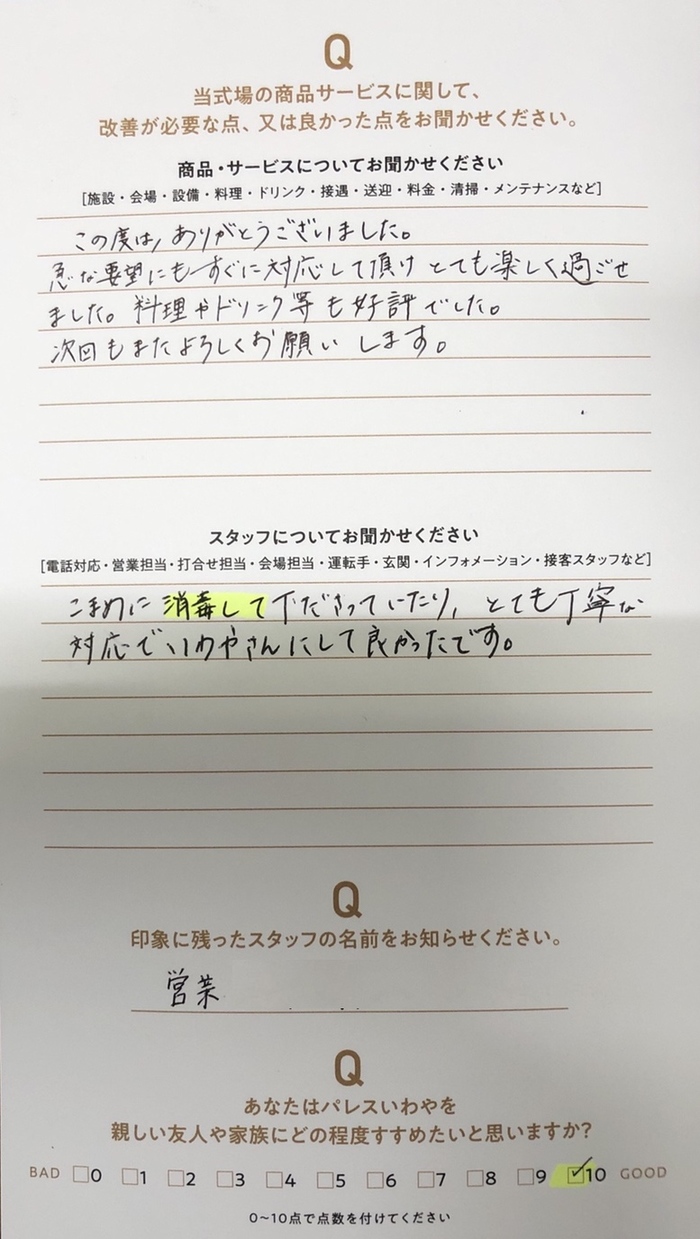 Q
当式場の商品サービスに関して、
改善が必要な点、又は良かった点をお聞かせください。
商品・サービスについてお聞かせください
[施設・会場・設備・料理・ドリンク・接遇・送迎・料金・清掃・メンテナンスなど]
この度は、ありがとうございました。
急な要望にもすぐに対応して頂け とても楽しく過ごせ
ました。料理やドリンク等も好評でした。
次回もまたよろしくお願いします。
スタッフについてお聞かせください
[電話対応・営業担当・打合せ担当・会場担当・運転手・玄関・インフォメーション・接客スタッフなど]
こまめに消毒して下さっていたり、とても丁寧な
対応でいわやさんにして良かったです。
Q
印象に残ったスタッフの名前をお知らせください。
営業
Q
あなたはパレスいわやを
親しい友人や家族にどの程度すすめたいと思いますか?
BAD □0 □1 □2 □3 □4 □5 □6 □7 □8 □9 ☑10 GOOD
0〜10点で点数を付けてください